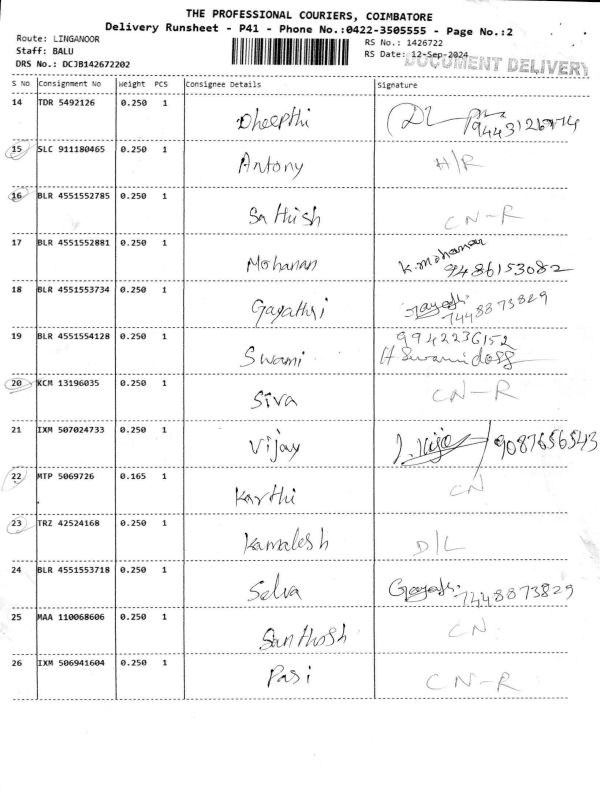 THE PROFESSIONAL COURIERS, COIMBATORE
Delivery Runsheet - P41 - Phone No.:0422-3505555 - Page No.:2
Route: LINGANOOR
RS No.: 1426722
Staff: BALU
RS Date: 12-Sep-2024
DOCUMENT DELIVERY
DRS No.: DCJB142672202
S No Consignment No Weight PCS Consignee Details Signature
14 TDR 5492126 0.250 1 Dheepthi
15 SLC 911180465 0.250 1 Antony H/R
16 BLR 4551552785 0.250 1 Sathish CN-R
17 BLR 4551552881 0.250 1 Mohanan K. mohanan
9486153082
18 BLR 4551553734 0.250 1 Gayathri
7448873829
19 BLR 4551554128 0.250 1 Swami 9942236152
H Swamidoss
20 KCM 13196035 0.250 1 Siva CN-R
21 IXM 507024733 0.250 1 Vijay 9087656543
22 MTP 5069726 0.165 1 Karthi CN
23 TRZ 42524168 0.250 1 Kamalesh D/L
24 BLR 4551553718 0.250 1 Selva
7448873829
25 MAA 110068606 0.250 1 Santhosh CN
26 IXM 506941604 0.250 1 Pasi CN-R